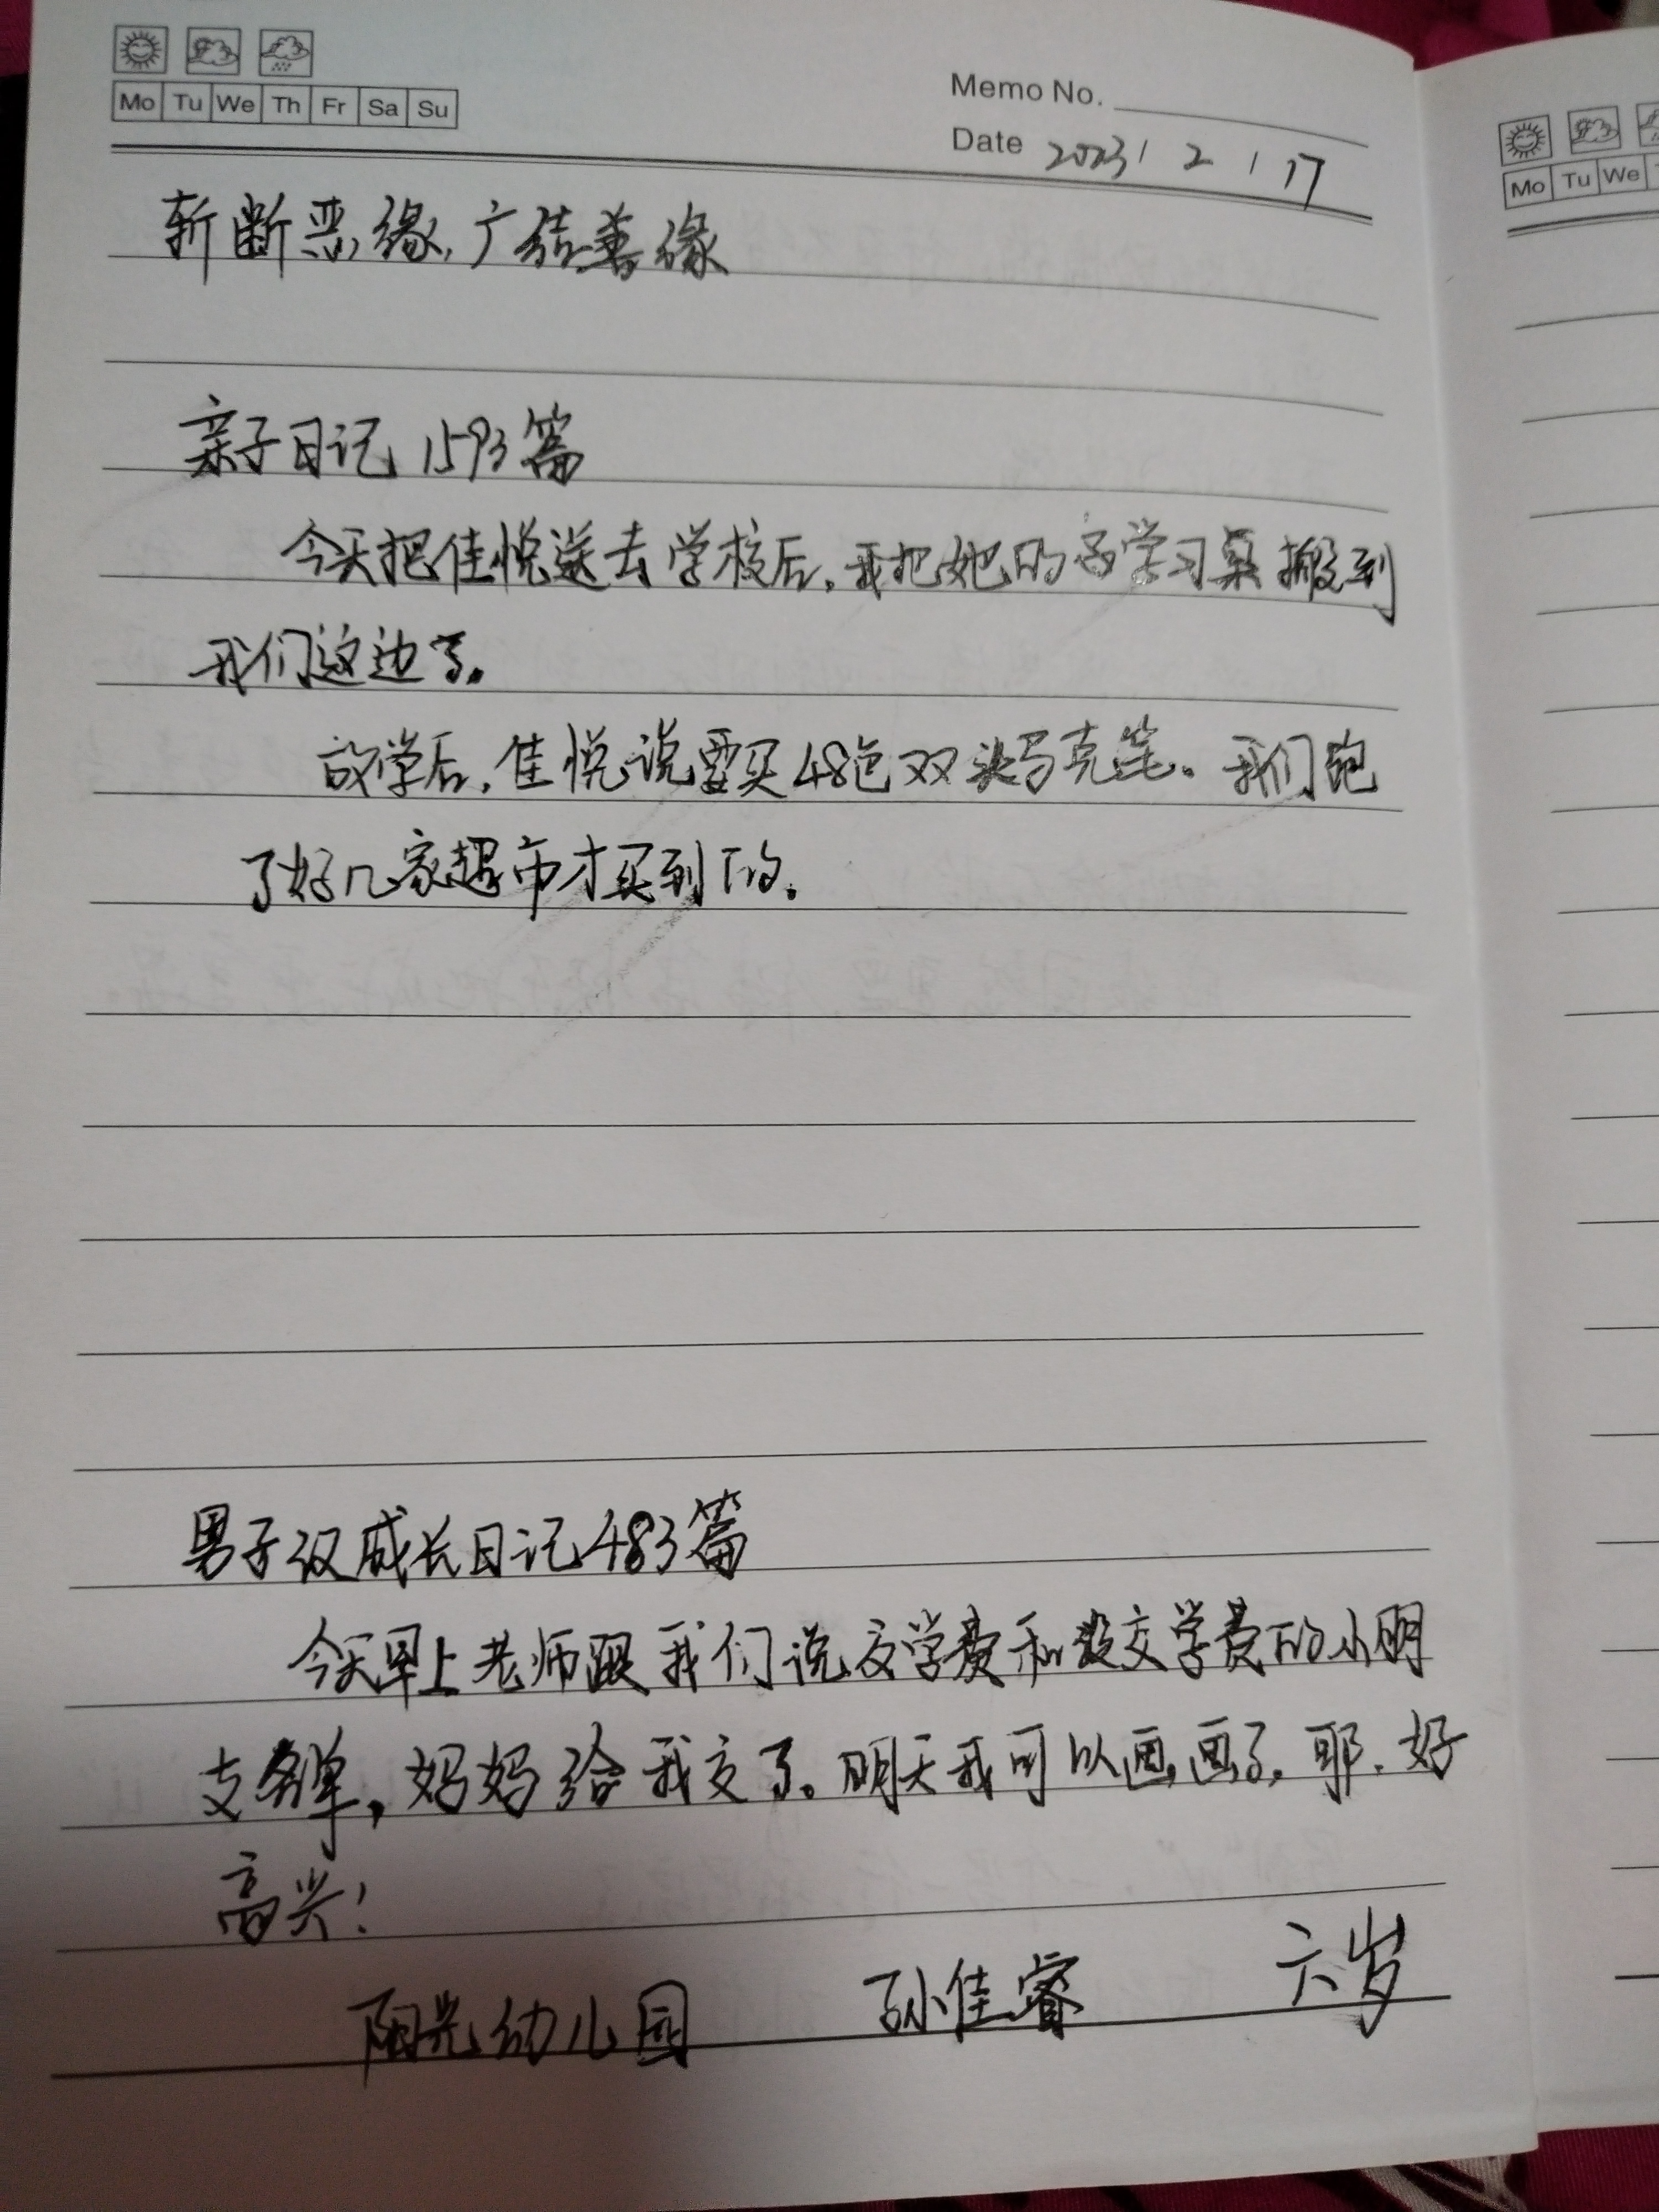 Mo Tu We Th Fr Sa Su
Memo No.
Date 2023 / 2 / 17
斩断恶缘,广结善缘
亲子日记 1593篇
今天把佳悦送去学校后,我把她的学习桌搬到
我们这边了。
放学后,佳悦说要买48色双头马克笔。我们跑
了好几家超市才买到的。
男子汉成长日记483篇
今天早上老师跟我们说交学费和没交学费的小朋
友名单,妈妈给我交了。明天我可以画画了,耶,好
高兴!
阳光幼儿园 孙佳睿 六岁
Mo Tu We